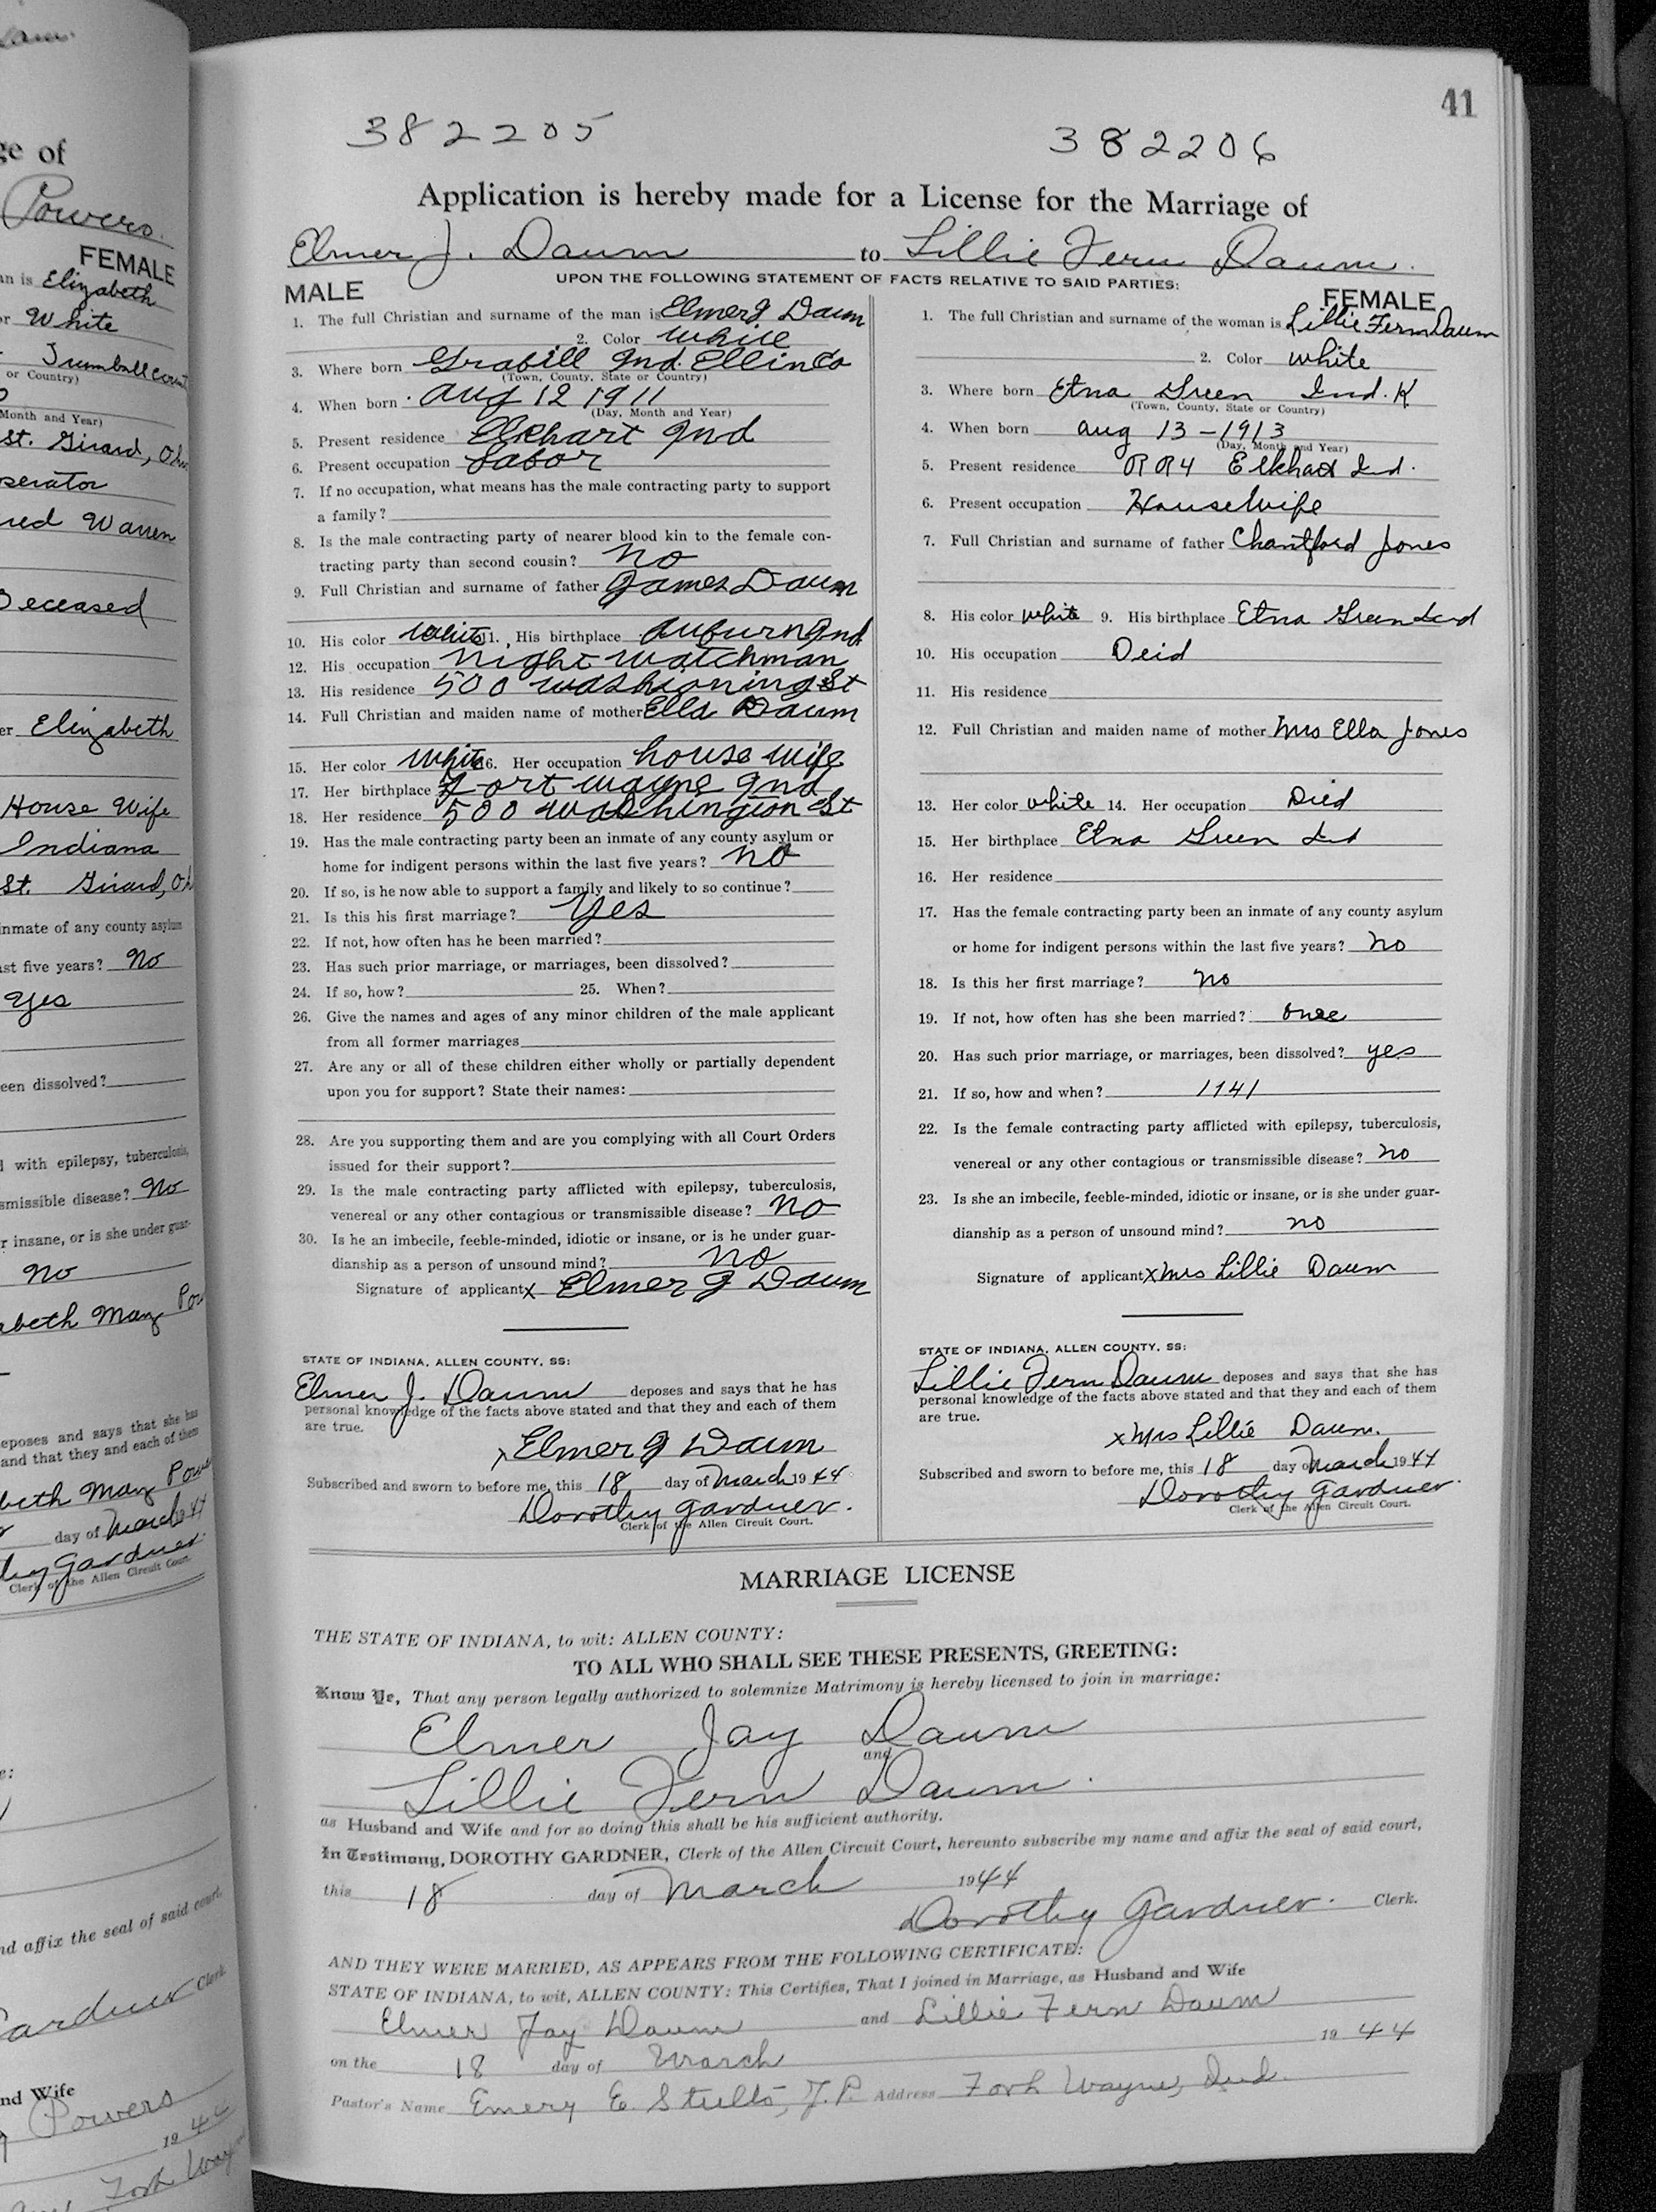 41
382205
382206
Application is hereby made for a License for the Marriage of
Elmer J. Daum to Lillie Fern Daum.
UPON THE FOLLOWING STATEMENT OF FACTS RELATIVE TO SAID PARTIES:
MALE
1. The full Christian and surname of the man is Elmer J Daum
2. Color White
3. Where born Grabill Ind. Ellin Co
(Town, County, State or Country)
4. When born Aug 12 1911
(Day, Month and Year)
5. Present residence Elkhart Ind
6. Present occupation Labor
7. If no occupation, what means has the male contracting party to support
a family?
8. Is the male contracting party of nearer blood kin to the female con-
tracting party than second cousin? no
9. Full Christian and surname of father James Daum
10. His color White 11. His birthplace Auburn Ind
12. His occupation night watchman
13. His residence 500 washioning St
14. Full Christian and maiden name of mother Ella Daum
15. Her color White 16. Her occupation house wife
17. Her birthplace Fort wayne Ind
18. Her residence 500 washington St
19. Has the male contracting party been an inmate of any county asylum or
home for indigent persons within the last five years? no
20. If so, is he now able to support a family and likely to so continue?
21. Is this his first marriage? Yes
22. If not, how often has he been married?
23. Has such prior marriage, or marriages, been dissolved?
24. If so, how? 25. When?
26. Give the names and ages of any minor children of the male applicant
from all former marriages
27. Are any or all of these children either wholly or partially dependent
upon you for support? State their names:
28. Are you supporting them and are you complying with all Court Orders
issued for their support?
29. Is the male contracting party afflicted with epilepsy, tuberculosis,
venereal or any other contagious or transmissible disease? no
30. Is he an imbecile, feeble-minded, idiotic or insane, or is he under guar-
dianship as a person of unsound mind? no
Signature of applicant x Elmer J Daum
STATE OF INDIANA, ALLEN COUNTY, SS:
Elmer J. Daum deposes and says that he has
personal knowledge of the facts above stated and that they and each of them
are true.
x Elmer J Daum
Subscribed and sworn to before me, this 18 day of March 1944
Dorothy Gardner.
Clerk of the Allen Circuit Court.
FEMALE
1. The full Christian and surname of the woman is Lillie Fern Daum
2. Color white
3. Where born Etna Green Ind. K
(Town, County, State or Country)
4. When born aug 13 - 1913
(Day, Month and Year)
5. Present residence RR4 Elkhart Ind.
6. Present occupation HouseWife
7. Full Christian and surname of father Chantford Jones
8. His color white 9. His birthplace Etna Green Ind
10. His occupation Deid
11. His residence
12. Full Christian and maiden name of mother Mrs Ella Jones
13. Her color white 14. Her occupation Died
15. Her birthplace Etna Green Ind
16. Her residence
17. Has the female contracting party been an inmate of any county asylum
or home for indigent persons within the last five years? no
18. Is this her first marriage? no
19. If not, how often has she been married? once
20. Has such prior marriage, or marriages, been dissolved? yes
21. If so, how and when? 1941
22. Is the female contracting party afflicted with epilepsy, tuberculosis,
venereal or any other contagious or transmissible disease? no
23. Is she an imbecile, feeble-minded, idiotic or insane, or is she under guar-
dianship as a person of unsound mind? no
Signature of applicant x Mrs Lillie Daum
STATE OF INDIANA, ALLEN COUNTY, SS:
Lillie Fern Daum deposes and says that she has
personal knowledge of the facts above stated and that they and each of them
are true.
x Mrs Lillie Daum.
Subscribed and sworn to before me, this 18 day of March 1944
Dorothy Gardner.
Clerk of the Allen Circuit Court.
MARRIAGE LICENSE
THE STATE OF INDIANA, to wit: ALLEN COUNTY:
TO ALL WHO SHALL SEE THESE PRESENTS, GREETING:
Know Ye, That any person legally authorized to solemnize Matrimony is hereby licensed to join in marriage:
Elmer Jay Daum
and
Lillie Fern Daum.
as Husband and Wife and for so doing this shall be his sufficient authority.
In Testimony, DOROTHY GARDNER, Clerk of the Allen Circuit Court, hereunto subscribe my name and affix the seal of said court,
this 18 day of March 1944
Dorothy Gardner. Clerk.
AND THEY WERE MARRIED, AS APPEARS FROM THE FOLLOWING CERTIFICATE:
STATE OF INDIANA, to wit, ALLEN COUNTY: This Certifies, That I joined in Marriage, as Husband and Wife
Elmer Jay Daum and Lillie Fern Daum
on the 18 day of March 1944
Pastor's Name Emery E. Stults, J.P. Address Forh Wayne, Ind.